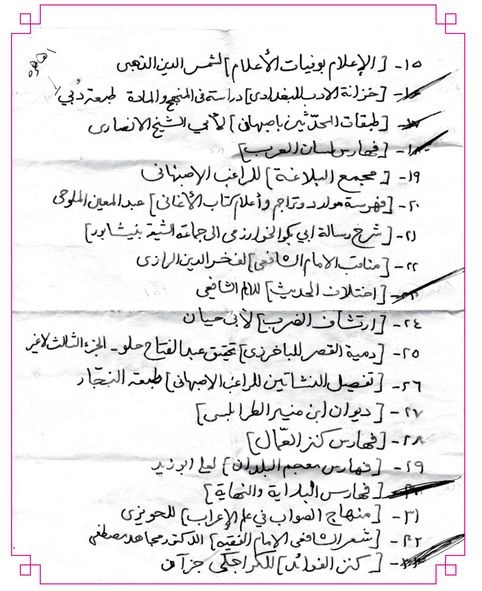 القاهرة
١٥- [الإعلام بوفيات الأعلام] لشمس الدين الذهبي
١٦- [خزانة الأدب للبغدادي] دراسة في المنهج والمادة طبعة دُبي
١٧- [طبقات المحدّثين بإصبهان] لأبي الشيخ الانصاري
١٨- [فهارس لسان العرب]
١٩- [مجمع البلاغة] للراغب الاصبهاني
٢٠- [فهرسة موارد وتراجم وأعلام كتاب الأغاني] عبد المعين الملوحي
٢١- [شرح رسالة ابي بكر الخوارزمي الى جماعة الشيعة بنيشابور]
٢٢- [مناقب الامام الشافعي] لفخر الدين الرازي
٢٣- [اختلاف الحديث] للامام الشافعي
٢٤- [ارتشاف الضرب] لأبي حيان
٢٥- [دمية القصر للباخرزي] تحقيق عبد الفتاح حلو - الجزء الثالث لاغير
٢٦- [تفصيل النشأتين للراغب الاصبهاني] طبعة النجّار
٢٧- [ديوان ابن منير الطرابلسي]
٢٨- [فهارس كنز العمّال]
٢٩- [فهارس معجم البلدان] لعلي ابو زيد
٣٠- [فهارس البداية والنهاية]
٣١- [منهاج الصواب في علم الإعراب] للحويزي
٣٢- [شعر الشافعي الامام الفقيه] الدكتور مجاهد مصطفى
٣٣- [كنز الفوائد] للكراجكي جزآن